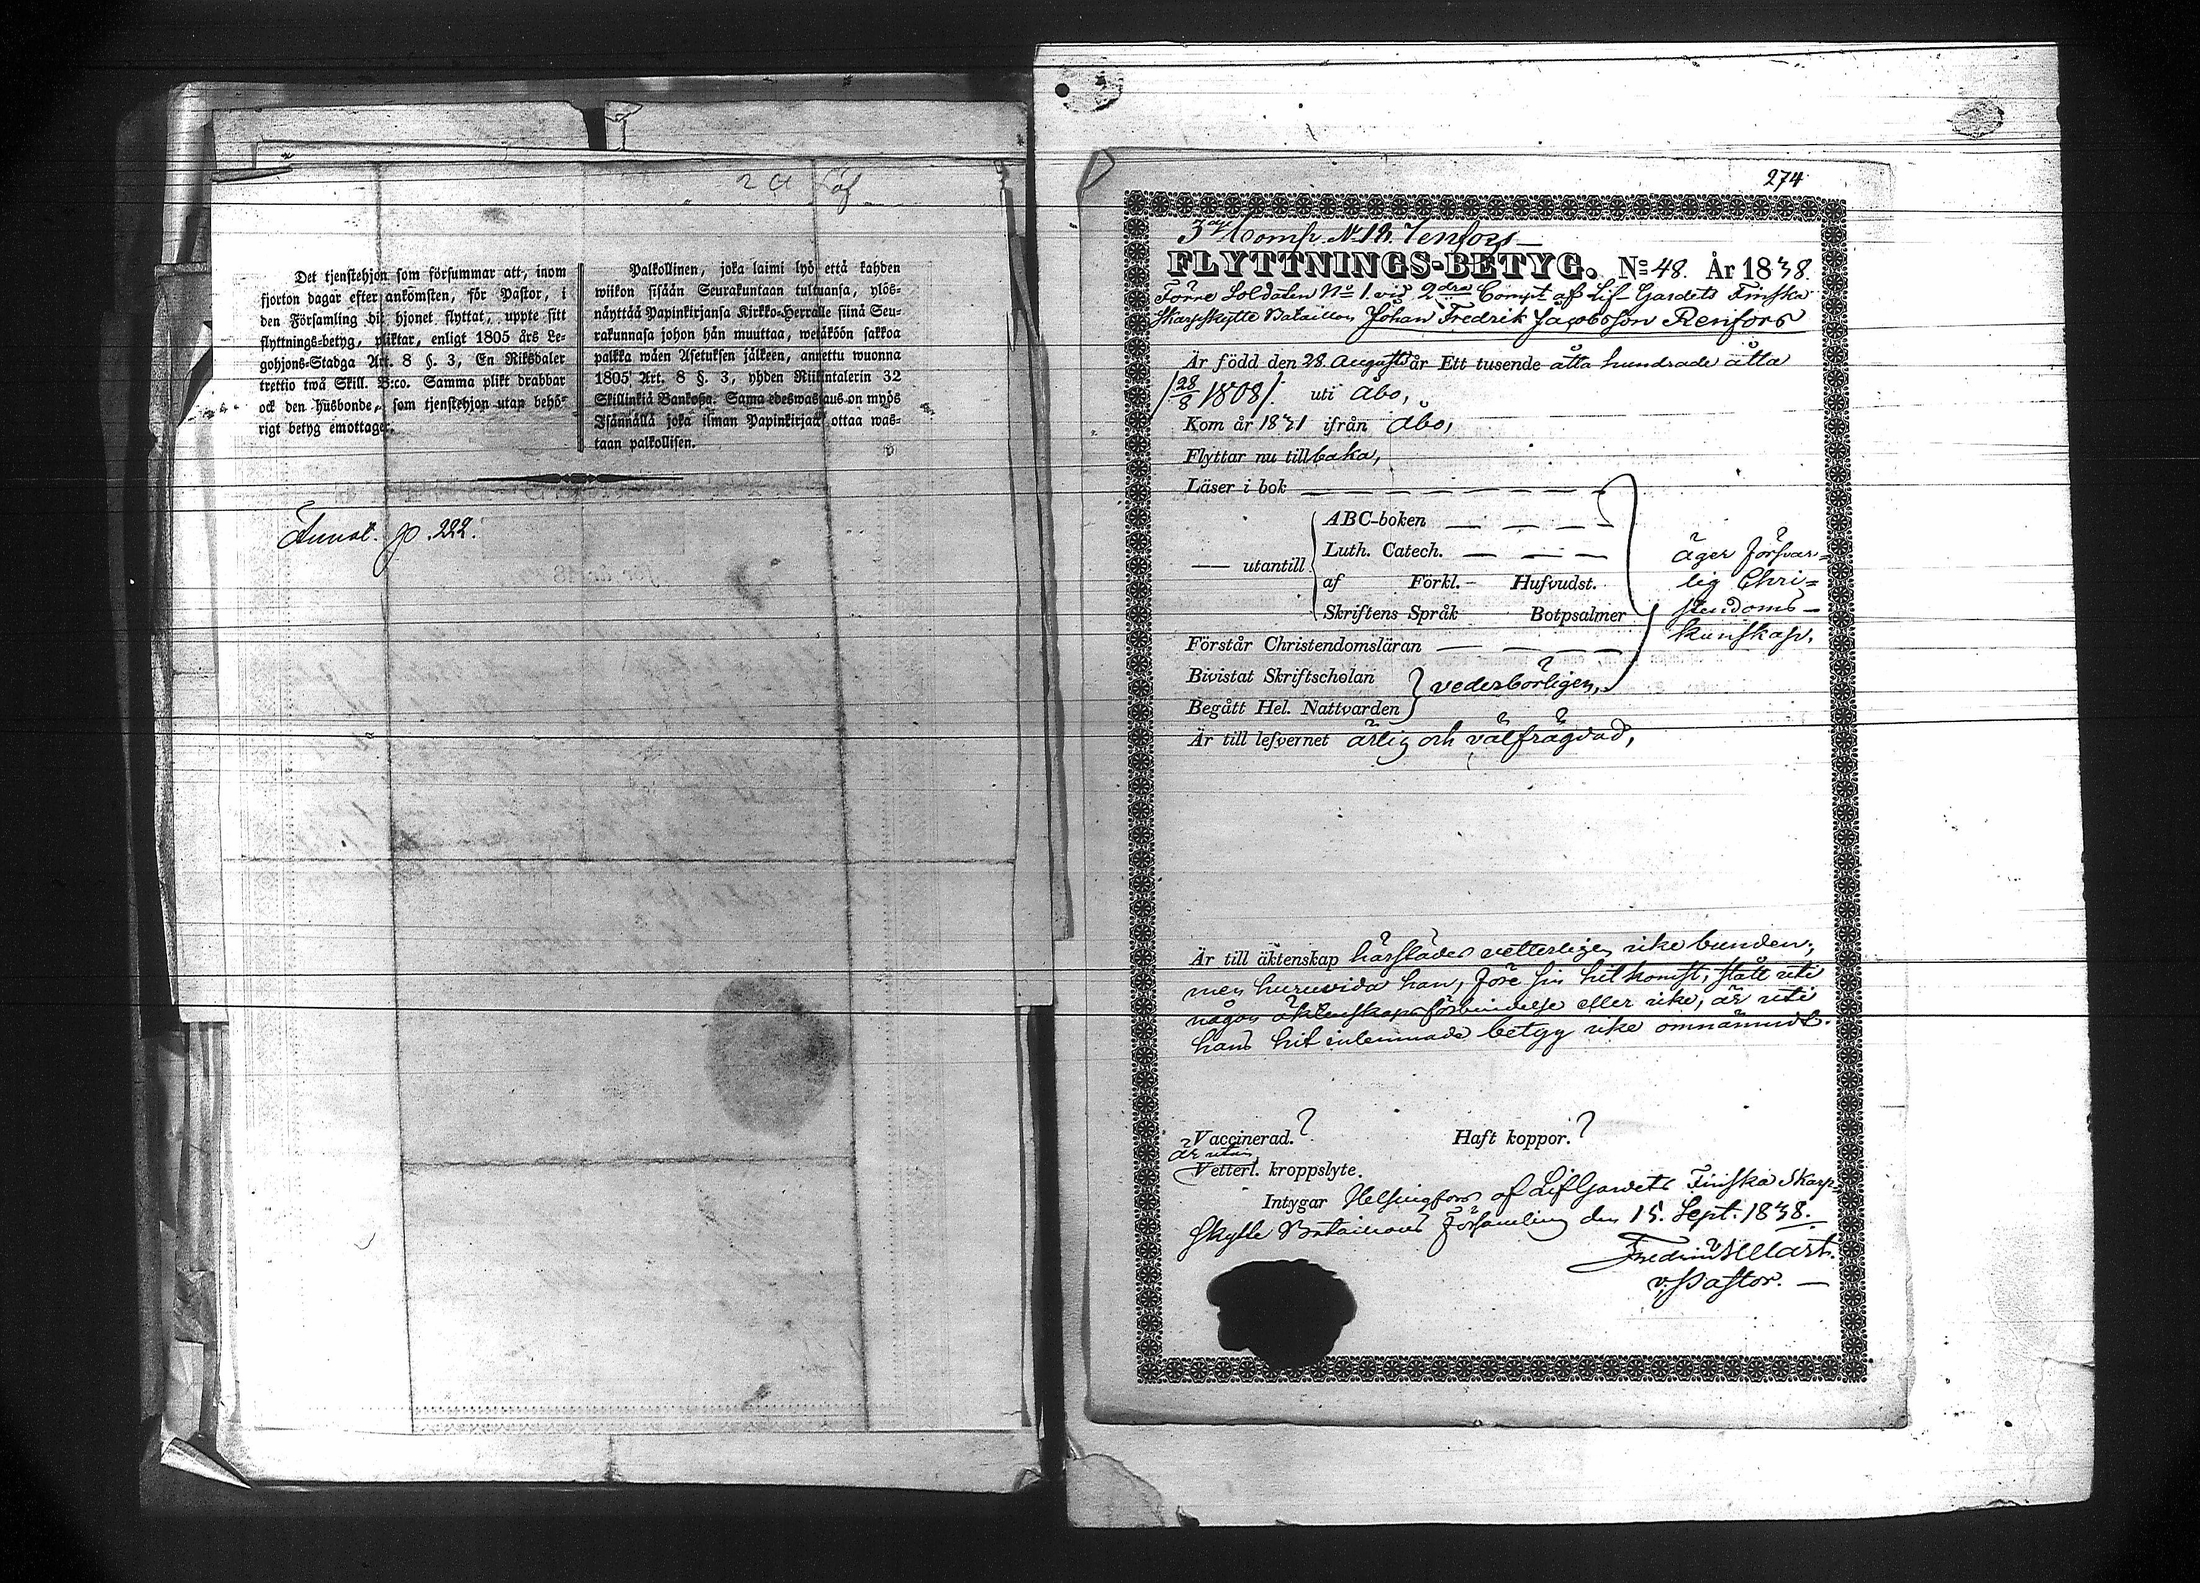 Det tjenstehjon som försummar att, inom
fjorton dagar efter ankomsten, för Pastor, i
den Församling dit hjonet flyttat, uppte sitt
flyttnings-betyg, pliktar, enligt 1805 års Le-
gohjons-Stadga Art. 8 §. 3, En Riksdaler
trettio twå Skill. B:co. Samma plikt drabbar
ock den husbonde, som tjenstehjon utan behö-
rigt betyg emottager.
Palkollinen, joka laimi lyö että kahden
wiikon sisään Seurakuntaan tultuansa, ylös-
näyttää Papinkirjansa Kirkko-Herralle siinä Seu-
rakunnasa johon hän muuttaa, wetäköön sakkoa
palkka wäen Asetuksen jälkeen, annettu wuonna
1805 Art. 8 §. 3, yhden Riikintalerin 32
Skillinkiä Bankosa. Sama edeswastaus on myös
Isännällä joka ilman Papinkirjaa ottaa was-
taan palkollisen.
Annot. p. 222.
274
3dje Comp. N 12.
FLYTTNINGS-BETYG. No 48. År 1838.
Förre Soldaten No 1. vid 2dra Comp. af Lif-Gardets Finska
Skarpskytte Bataillon Johan Fredrik Jacobsson Renfors
Är född den 28 Augusti år Ett tusende åtta hundrade åtta
/28/8 1808/. uti Åbo,
Kom år 1831 ifrån Åbo,
Flyttar nu tillbaka,
Läser i bok
— utantill
ABC-boken
Luth. Catech.
af Förkl. Hufvudst.
Skriftens Språk Botpsalmer
äger försvar-
lig Chri-
stendoms-
kunskap.
Förstår Christendomsläran
Bivistat Skriftscholan
vederbörligen,
Begått Hel. Nattvarden
Är till lefvernet ärlig och välfrägdad,
Är till äktenskap härstädes vetterligen icke bunden;
men huruvida han, före sin hitkomst, stått uti
någon äktenskapsförbindelse eller icke, är uti
hans hit inlemnade betyg icke omnämndt.
Vaccinerad. ? Haft koppor. ?
är utan
Vetterl. kroppslyte.
Intygar Helsingfors af LifGardets Finska Skarp-
skytte Bataillons Församling den 15. Sept. 1838.
v. Pastor. —